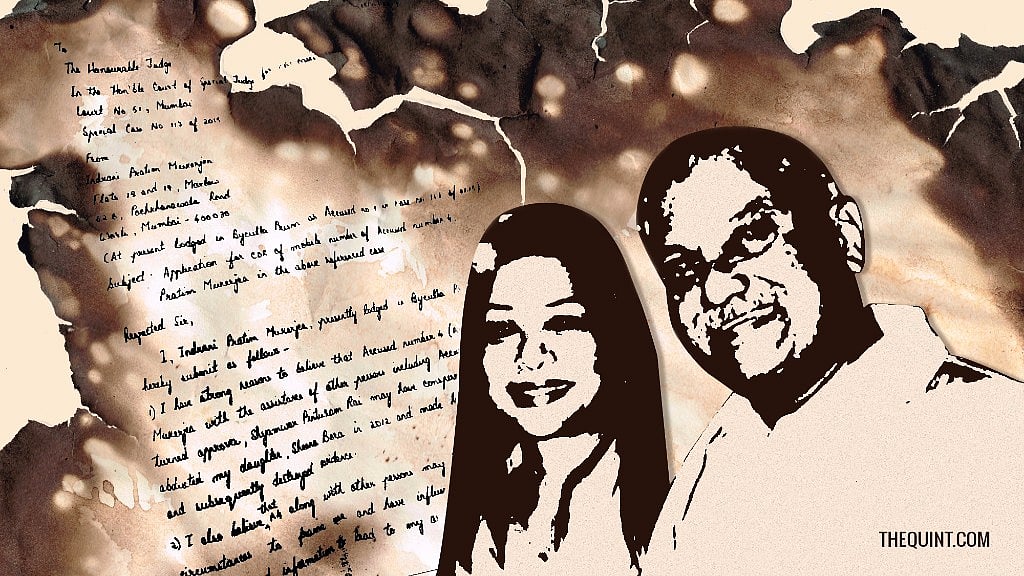 To
The Honourable Judge
In the Hon'ble Court of Special Judge for
Court No 51, Mumbai
Special Case No 117 of 2015
From
Indrani Pratim Mukerjea
Flats 18 and 19, Marlow
62 B, Pochkhanawala Road
Worli, Mumbai - 400030
(At present lodged in Byculla Prison as Accused no. 1 in case no.
Subject: Application for CDR of mobile number of Accused number 4,
Pratim Mukerjea in the above referenced case
Respected Sir,
I, Indrani Pratim Mukerjea, presently lodged in Byculla
hereby submit as follows -
1) I have strong reasons to believe that Accused number 4
Mukerjea with the assistance of other persons including
turned approver, Shyamwar Pinturam Rai may have
abducted my daughter, Sheena Bora in 2012 and made
and subsequently destroyed evidence.
2) I also believe, that along with other persons may
circumstances to frame me and have
information to lead to my
THEQUINT.COM